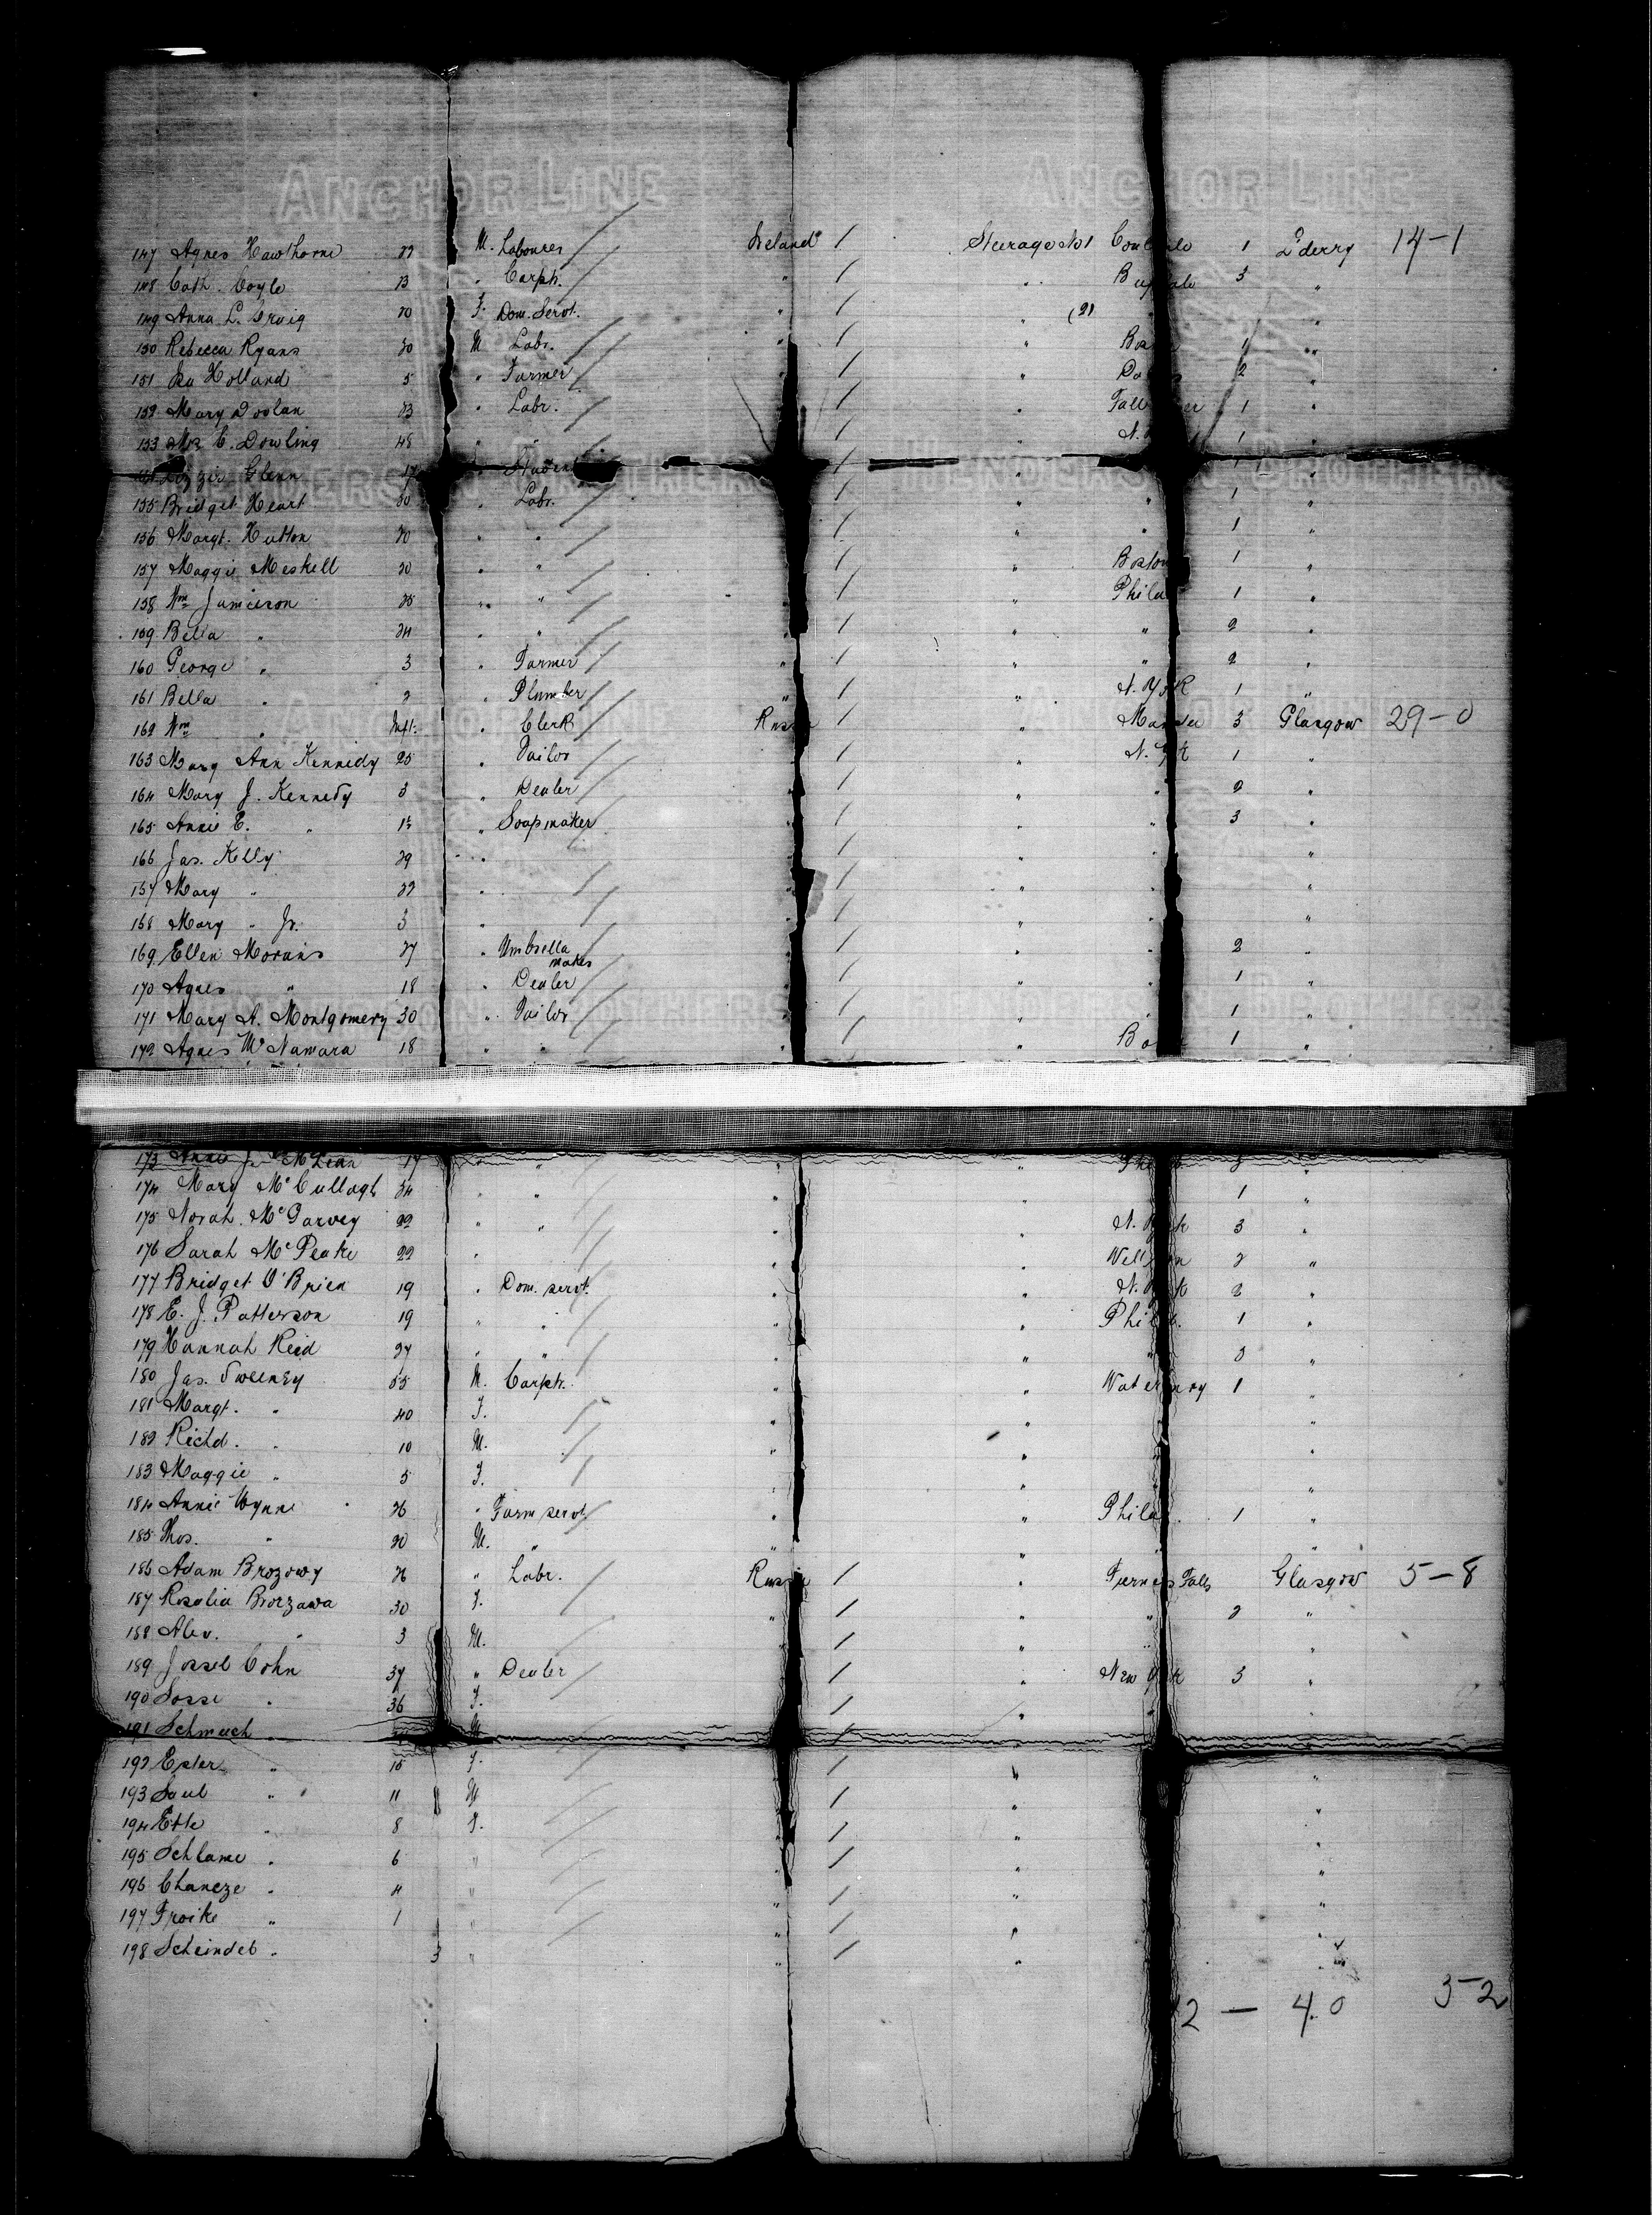 ANCHOR LINE ANCHOR LINE
147 Agnes Hawthorne 22 M. Labourer Ireland / Steerage No1 1 L'derry 14-1
148 Cath. Coyle 13 " Carptr. " / " Buffalo 3 "
149 Anna L. Greig 20 F. Dom. Servt. " / " (2) "
150 Rebecca Ryans 30 M Labr. " / " 1 "
151 Holland 5 " Farmer " / " 2 "
152 Mary Doolan 23 " Labr. / " Fall River 1 "
153 Mrs C. Dowling 48 " " / " N. 1 "
HENDERSON BROTHERS HENDERSON BROTHERS
154 Lizzie Glenn 17 " / " 1 "
155 Bridget Heart 30 " Labr. / " " 1 "
156 Margt. Hutton 20 " " / " " 1 "
157 Maggie Meskell 20 " " / " Boston 1 "
158 Wm Jamieson 25 " " / " Phila 1 "
159 Bella " 24 " " " / " " 2 "
160 George " 3 " Farmer " / " " 2 "
161 Bella " 2 " Plumber " / " N. York 1 "
ANCHOR LINE ANCHOR LINE
162 Wm " Inft. " Clerk Russia / " 3 Glasgow 29-0
163 Mary Ann Kennedy 25 " Tailor / " N. York 1 "
164 Mary J. Kennedy 3 " Dealer " / " " 2 "
165 Annie E. " 1½ " Soapmaker " / " " 3 "
166 Jas. Kelly 29 " " / " " "
167 Mary " 22 " " / " " "
168 Mary " Jr. 3 " " / " " "
169 Ellen Morans 27 " Umbrella maker " / " " 2 "
170 Agnes " 18 " Dealer " / " " 1 "
171 Mary A. Montgomery 30 " Tailor " / " " 1 "
172 Agnes McNamara 18 " " " / " 1 "
173 Annie J. McLean 17 " " " " 3 "
174 Mary McCullagh 34 " " " " 1 "
175 Norah McGarvey 22 " " " " N. York 3 "
176 Sarah McPeake 22 " " " 2 "
177 Bridget O'Brien 19 " Dom. servt. " " N. York 2 "
178 E. J. Patterson 19 " " " " Phila. 1 "
179 Hannah Reid 27 " " " " " 3 "
180 Jas. Sweeney 55 M. Carptr. " " Waterbury 1 "
181 Margt. " 40 F. " " " "
182 Richd. " 10 M. " " " "
183 Maggie " 5 F. " " " "
184 Annie Wynne 26 " Farm servt. " " Phila. 1 "
185 Thos. " 20 M. " " " " "
186 Adam Brozowy 26 " Labr. Russia / " Turners Falls Glasgow 5-8
187 Rosalia Brozawa 30 F. " / " " 2 "
188 Alex. " 3 M. / " " "
189 Jossel Cohn 37 " Dealer / " New York 3 "
190 Sosse " 36 F. / " " "
191 Schmuch " M /
192 Ester " 15 F. / " "
193 Saul " 11 M / " "
194 Ette " 8 F. " / " "
195 Schlame " 6 " " / " "
196 Chaneze " 4 " " / " "
197 Froike " 1 " " / " "
198 Scheindel " 3 " " / " "
2 — 40 52